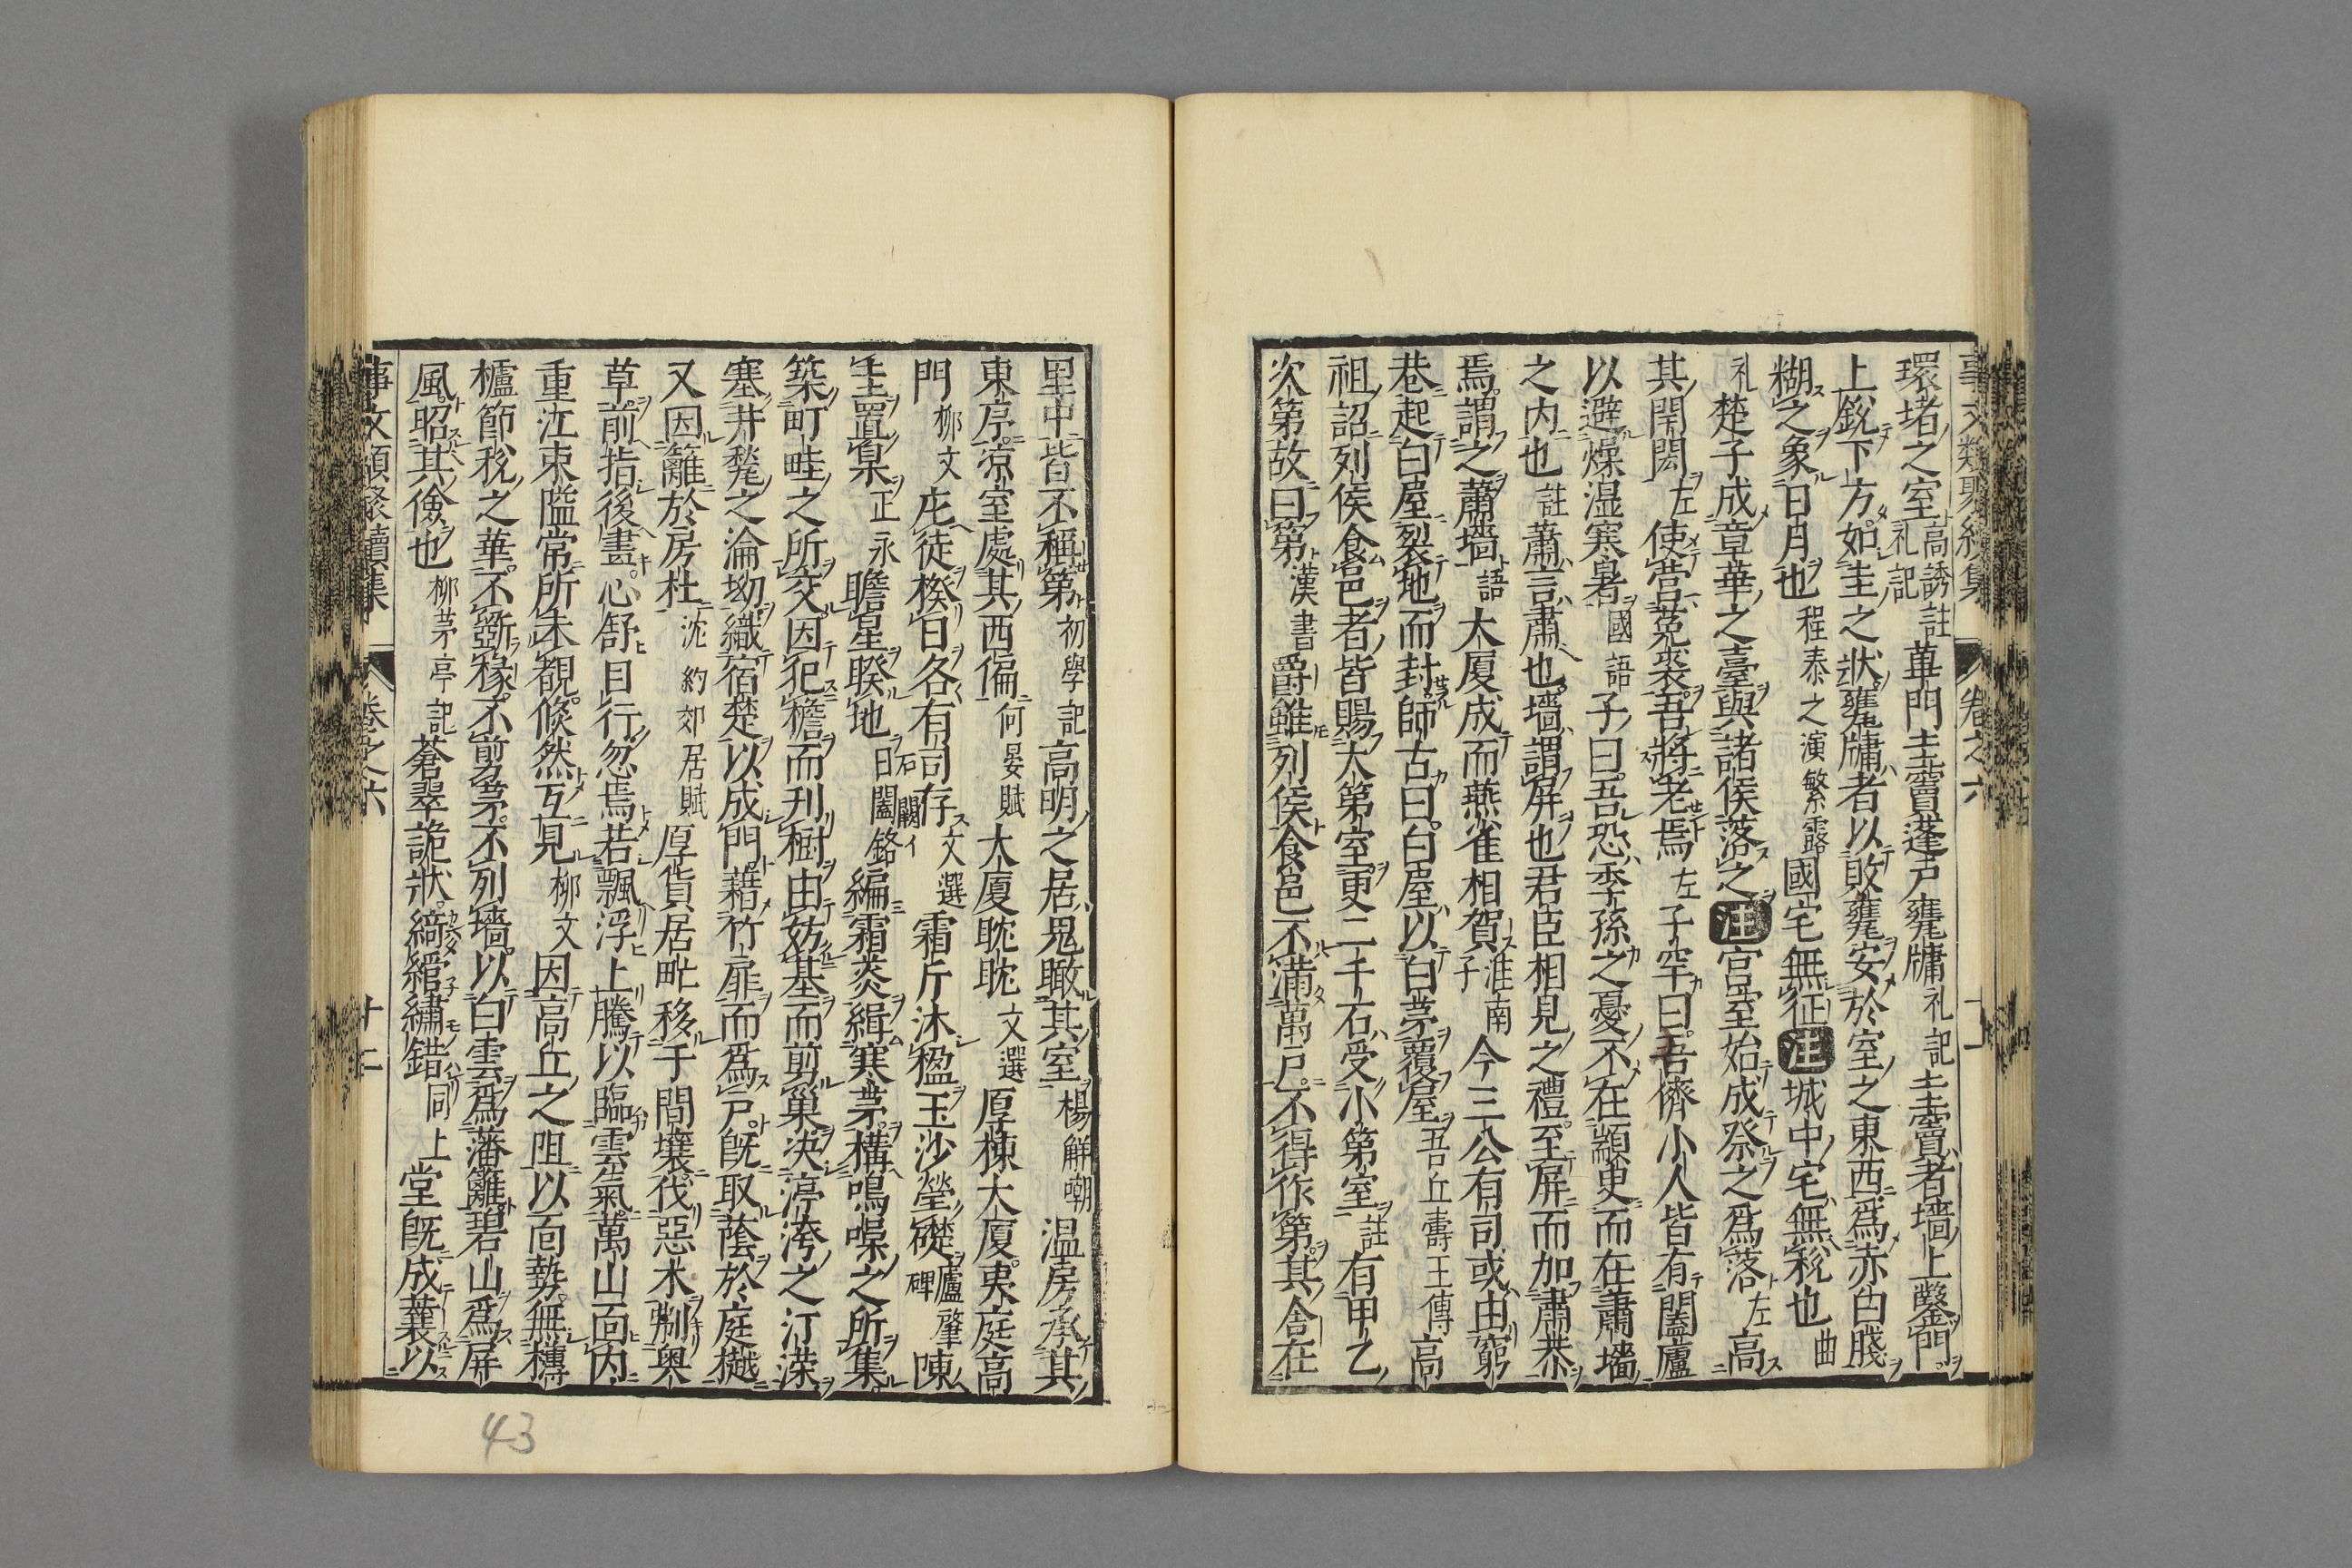 事文類聚續集 卷之六 十二
環堵之室高誘註礼記蓽門圭竇蓬戸甕牖礼記圭竇者墻上鑿門
上銳下方如圭之狀甕牖者以敗甕安於室之東西爲赤白牋
糊之象日月也程泰之演繁露國宅無征注城中宅無稅也曲
礼楚子成章華之臺與諸侯落之注宮室始成祭之爲落左高
其閈閎左使营菟裘吾將老焉左子罕曰吾儕小人皆有闔廬
以避燥湿寒暑國語子曰吾恐季孫之憂不在顓臾而在蕭墻
之内也註蕭言肅也墻謂屏也君臣相見之禮至屏而加肅恭
焉謂之蕭墻語大厦成而燕雀相賀淮南子今三公有司或由窮
巷起白屋裂地而封師古曰白屋以白茅覆屋吾丘壽王傳高
祖詔列侯食邑者皆賜大第室更二千石受小第室註有甲乙
次第故曰第漢書爵雖列侯食邑不滿萬戸不得作第其舍在
里中皆不稱第初學記高明之居鬼瞰其室楊觧嘲温房承其
東序凉室處其西偏何晏賦大厦耽耽文選厚棟大厦夷庭高
門柳文庀徒揆日各有司存文選霜斤沐楹玉沙瑩礎盧肇碑陳
圭置臬正永瞻星睽地石闕銘編霜菼緝寒茅構鳴喿之所集
築町畦之所交因犯檐而刋樹由妨基而剪巢決渟洿之汀濚
塞井甃之淪坳織宿楚以成門藉竹扉而爲戸既取蔭於庭樾
又因籬於房杜沈約郊居賦厚貨居甿移于間壤伐惡木剬奥
草前指後畫心舒目行忽焉若飄浮上騰以臨雲氣萬山面内
重江束隘常所未覩倏然互見柳文因高丘之阻以面勢無欂
櫨節梲之華不斲椽不剪茅不列墻以白雲爲藩籬碧山爲屏
風昭其儉也柳茅亭記蒼翠詭狀綺綰繡錯同上堂既成蓑以
事文類聚續集 卷之六 十二
43